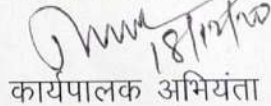 18/12/20
कार्यपालक अभियंता